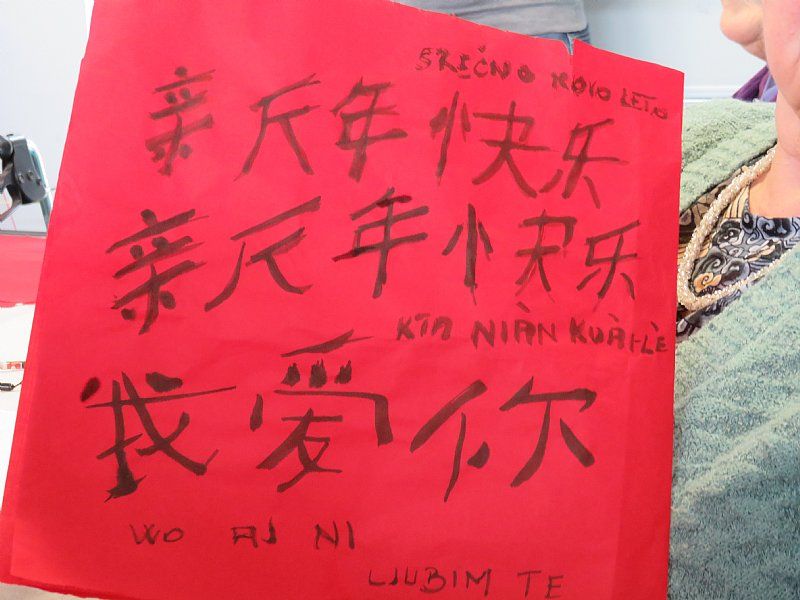 SREČNO NOVO LETO
亲斤年快乐
亲斤年快乐
XIN NIÀN KUÀILÈ
我爱你
WO AI NI
LJUBIM TE